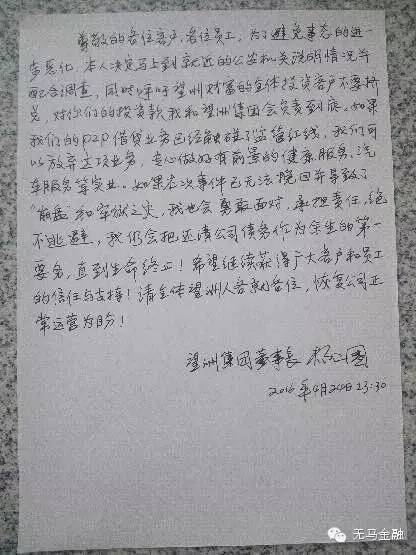 尊敬的各位客户，各位员工，为了避免事态的进一
步恶化，本人决定马上到就近的公安机关说明情况并
配合调查，同时呼吁望洲财富的全体投资客户不要挤
兑，对你们的投资款我和望洲集团会负责到底。如果
我们的P2P借贷业务已经触碰了监管红线，我们可
以放弃这项业务，专心做好有前景的健康服务、汽
车服务等实业。如果本次事件已无法挽回并导致了
“崩盘”和牢狱之灾，我也会勇敢面对，承担责任，绝
不逃避，我仍会把还清公司债务作为余生的第一
要务，直到生命终止！希望继续获得广大客户和员工
的信任与支持！请全体望洲人各就各位，恢复公司正
常运营为盼！
望洲集团董事长 杨卫国
2016年4月24日23:30
无马金融